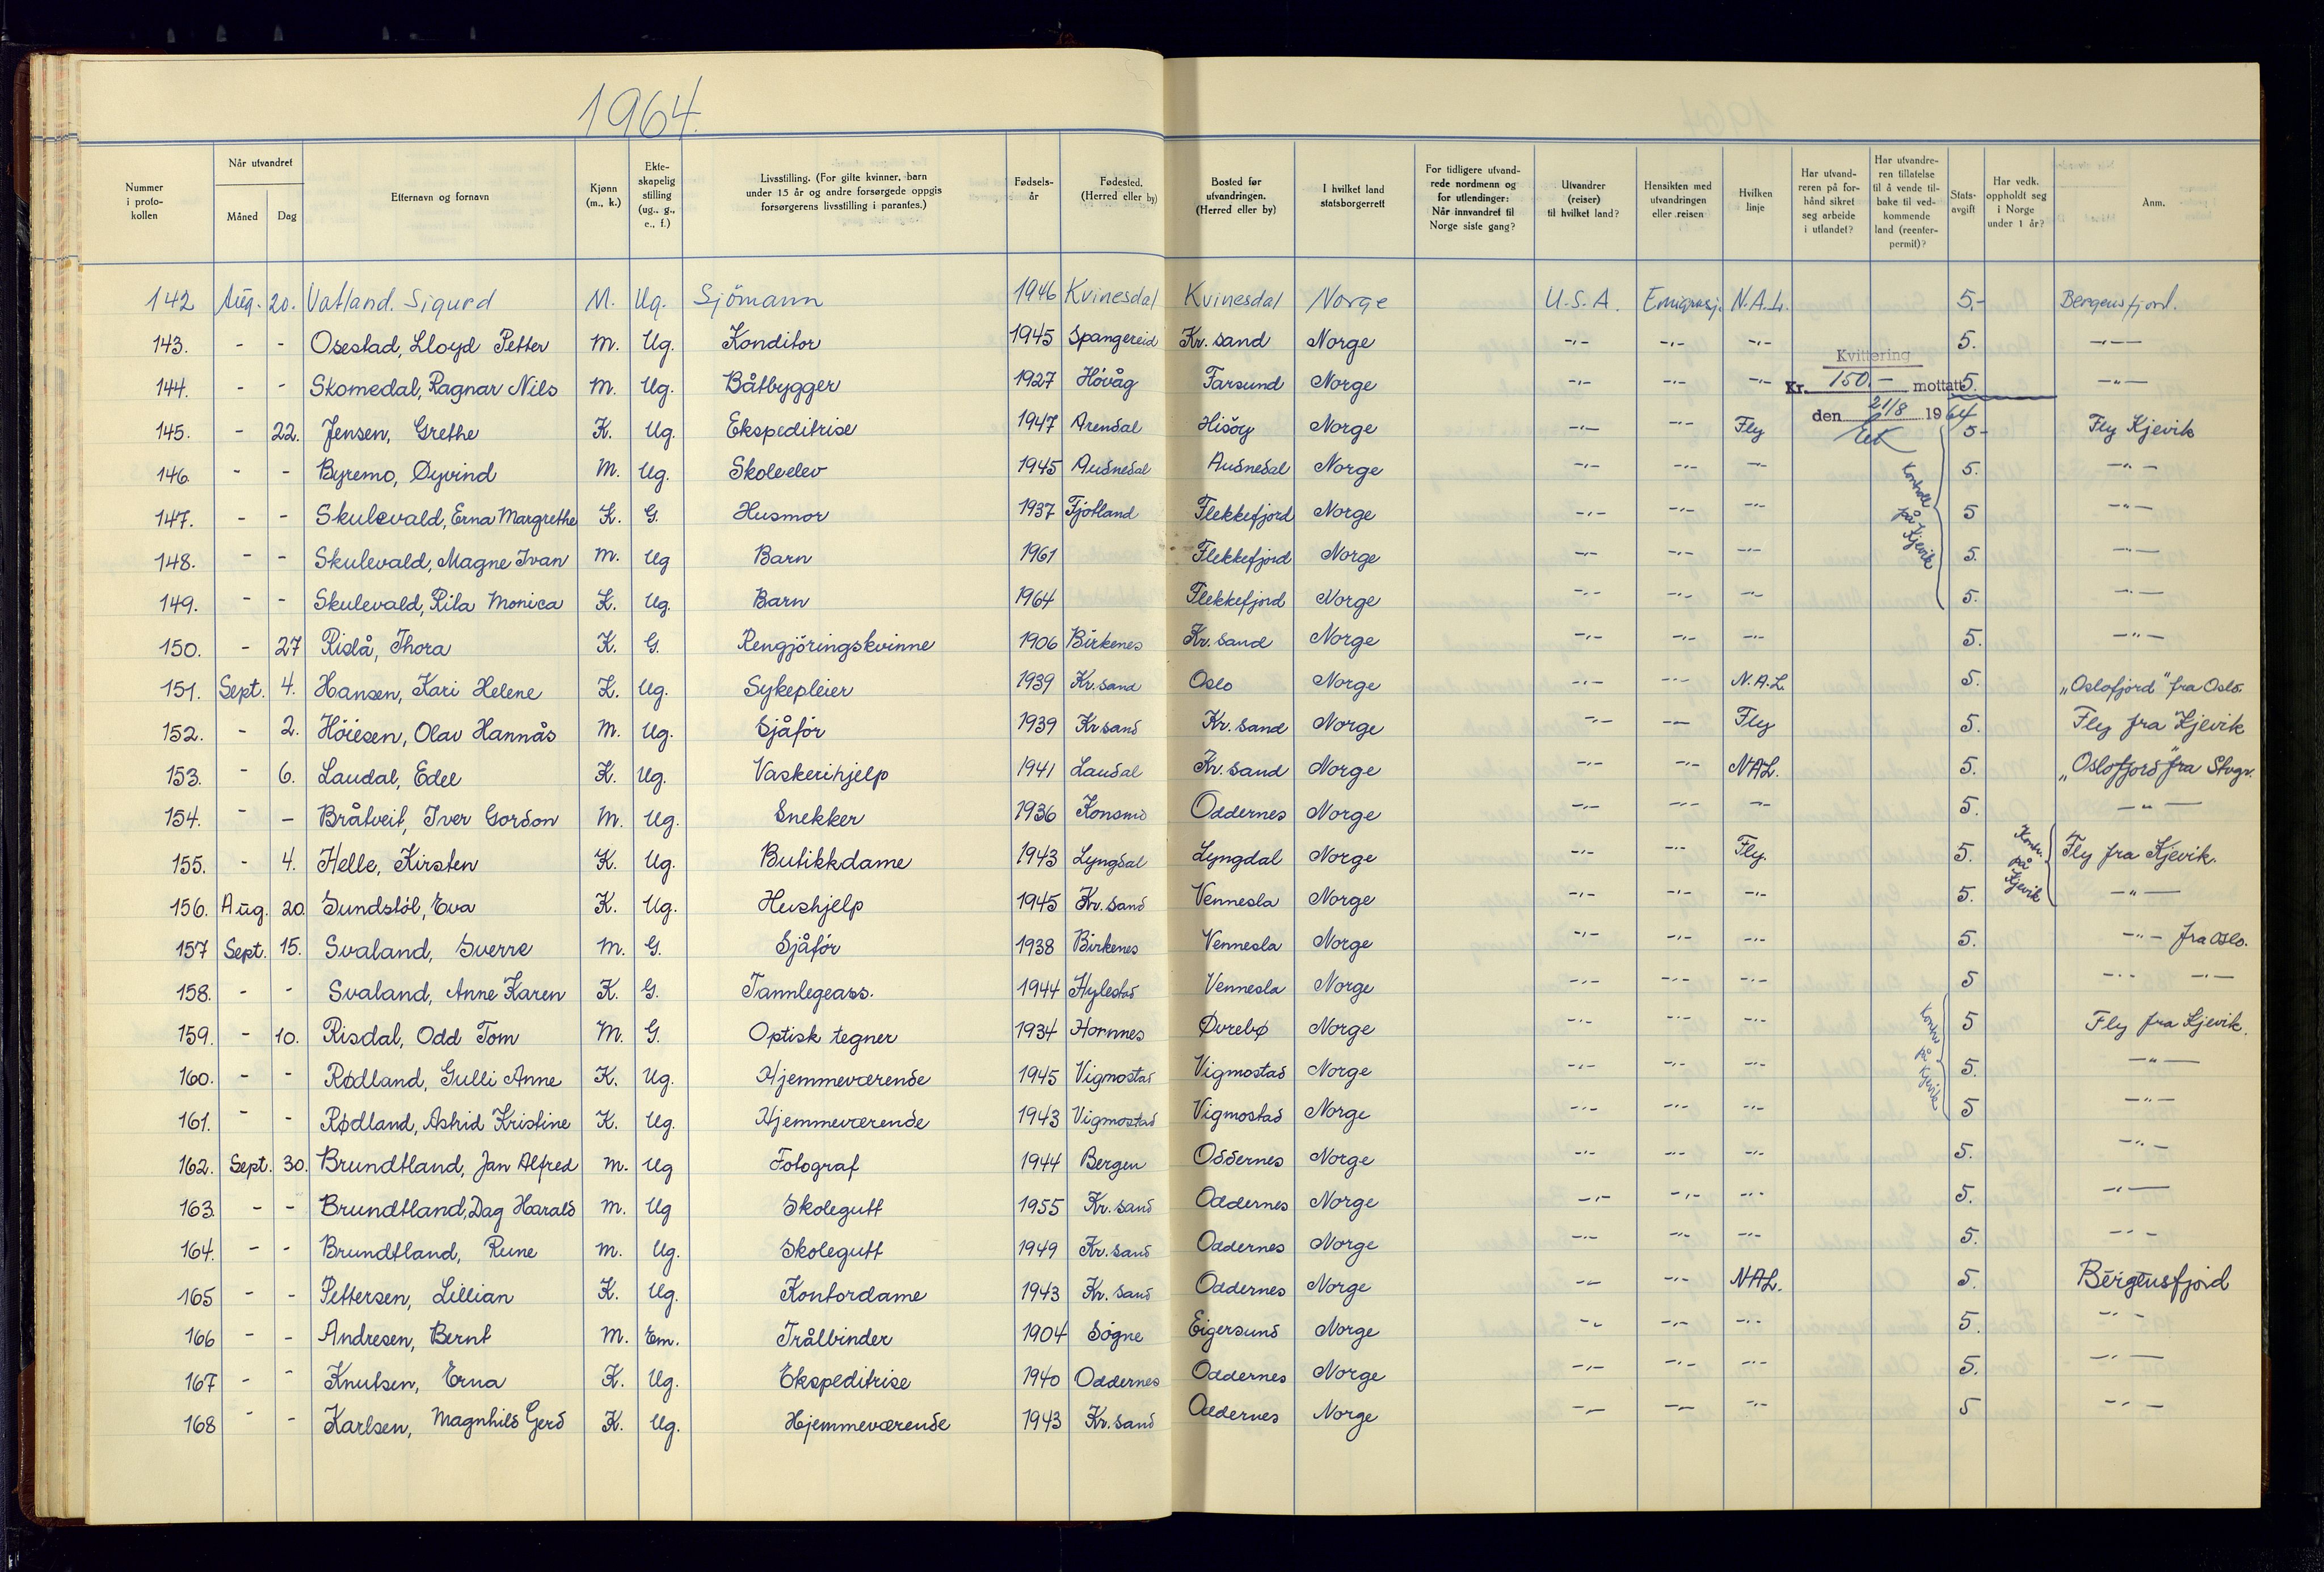 1964.
Nummer i proto-kollen | Når utvandret Måned Dag | Etternavn og fornavn | Kjønn (m., k.) | Ekte-skapelig stilling (ug., g., e., f.) | Livsstilling. (For gifte kvinner, barn under 15 år og andre forsørgede oppgis forsørgerens livsstilling i parantes.) | Fødsels-år | Fødested. (Herred eller by) | Bosted før utvandringen. (Herred eller by) | I hvilket land statsborgerrett | For tidligere utvand-rede nordmenn og for utlendinger: Når innvandret til Norge siste gang? | Utvandrer (reiser) til hvilket land? | Hensikten med utvandringen eller reisen | Hvilken linje | Har utvand-reren på for-hånd sikret seg arbeide i utlandet? | Har utvandre-ren tillatelse til å vende til-bake til ved-kommende land (reenter-permit)? | Stats-avgift | Har vedk. oppholdt seg i Norge under 1 år? | Anm.
142 Aug. 20. Vatland. Sigurd M. Ug. Sjömann 1946 Kvinesdal Kvinesdal Norge U.S.A. Emigrasj. N.A.L. 5,- Bergensfjord.
143. - - Osestad, Lloyd Petter M. Ug. Konditor 1945 Spangereid Kr. sand Norge -"- -"- -"- 5. -"-
Kvittering
144. - - Skomedal, Ragnar Nils M. Ug. Båtbygger 1927 Hövåg Farsund Norge -"- -"- -"- Kr. 150.- mottatt 5. -"-
den 21/8 1964
145. - 22. Jensen, Grethe K. Ug. Ekspeditrise 1947 Arendal Hisöy Norge -"- -"- Fly 5- Fly Kjevik
146. - - Byremo, Øyvind M. Ug. Skoleelev 1945 Audnedal Audnedal Norge -"- -"- -"- Kontroll på Kjevik 5. -"-
147. - - Skulevald, Erna Margrethe K. G. Husmor 1937 Fjotland Flekkefjord Norge -"- -"- -"- 5 -"-
148. - - Skulevald, Magne Ivan M. Ug Barn 1961 Flekkefjord Norge -"- -"- -"- 5. -"-
149. - - Skulevald, Rita Monica K. Ug. Barn 1964 Flekkefjord Norge -"- -"- -"- 5. -"-
150. - 27 Ridå, Thora K. G. Rengjöringskvinne 1906 Birkenes Kr. sand Norge -"- -"- -"- 5. -"-
151. Sept. 4. Hansen, Kari Helene K. Ug. Sykepleier 1939 Kr. sand Oslo Norge -"- -"- N.A.L. 5. "Oslofjord" fra Oslo.
152. - 2. Höiesen, Olav Hannås M. Ug. Sjåför 1939 Kr sand Kr. sand Norge -"- -"- Fly 5. Fly fra Kjevik
153. - 6. Laudal, Edel K. Ug. Vaskerihjelp 1941 Laudal Kr. sand Norge -"- -"- NAL. 5. "Oslofjord" fra Stvgr.
154. - - Bråtveit, Iver Gordon M. Ug. Snekker 1936 Konsmo Oddernes Norge -"- -"- -"- 5. -"-
155. - 4. Helle, Kirsten K. Ug. Butikkdame 1943 Lyngdal Lyngdal Norge -"- -"- Fly. 5. Kontr. på Kjevik Fly fra Kjevik.
156. Aug. 20. Sundstöl, Eva K. Ug. Hushjelp 1945 Kr. sand Vennesla Norge -"- -"- -"- 5. -"-
157 Sept. 15. Svaland, Sverre M. G. Sjåför 1938 Birkenes Vennesla Norge -"- -"- -"- 5. -"- fra Oslo.
158. - - Svaland, Anne Karen K. G. Tannlegeass. 1944 Hylestad Vennesla Norge -"- -"- -"- 5 -"- -"-
159. - 10. Risdal, Odd Tom M. G. Optisk tegner 1934 Hornnes Øvrebø Norge -"- -"- -"- Kontroll på Kjevik 5 Fly fra Kjevik.
160. - - Rødland, Gulli Anne K. Ug. Hjemmeværende 1945 Vigmostad Vigmostad Norge -"- -"- -"- 5. -"-
161. - - Rødland, Astrid Kristine K. Ug. Hjemmeværende 1943 Vigmostad Vigmostad Norge -"- -"- -"- 5 -"-
162. Sept. 30. Brundtland, Jan Alfred M. Ug Fotograf 1944 Bergen Oddernes Norge -"- -"- -"- 5. -"-
163. - - Brundtland, Dag Harald M. Ug Skolegutt 1955 Kr. sand Oddernes Norge -"- -"- -"- 5. -"-
164. - - Brundtland, Rune M. Ug. Skolegutt 1949 Kr. sand Oddernes Norge -"- -"- -"- 5. -"-
165 - - Pettersen, Lillian K. Ug. Kontordame 1943 Kr. sand Oddernes Norge -"- -"- NAL. 5. Bergensfjord
166 - - Andresen, Bernt M. Em. Trålbinder 1904 Sögne Eigersund Norge -"- -"- -"- 5. -"-
167 - - Knutsen, Erna K. Ug. Ekspeditrise 1940 Oddernes Oddernes Norge -"- -"- -"- 5. -"-
168 - - Karlsen, Magnhild Gerd K. Ug. Hjemmeværende 1943 Kr. sand Oddernes Norge -"- -"- -"- 5 -"-